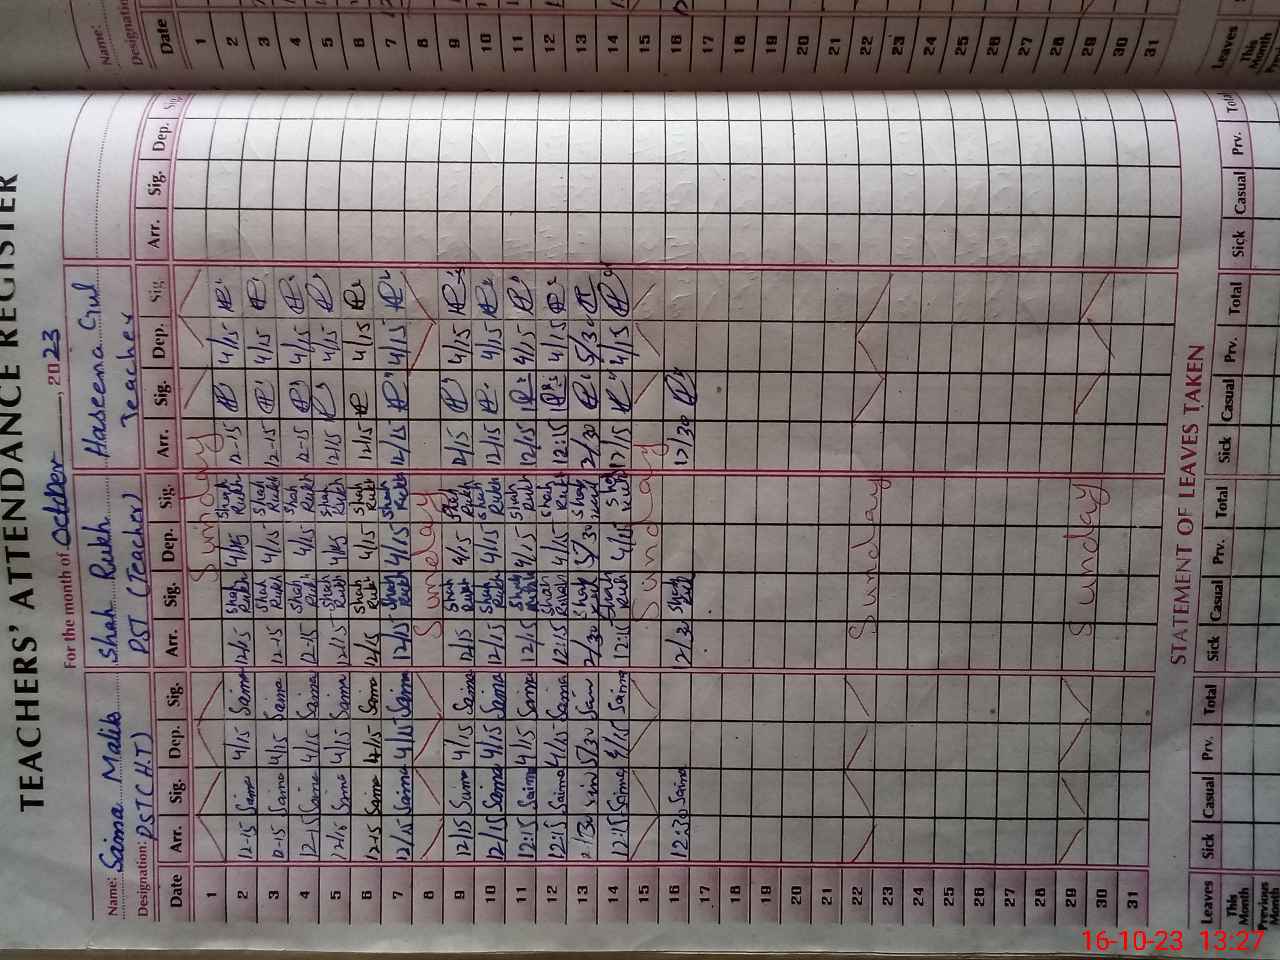 TEACHERS' ATTENDANCE REGISTER
For the month of October, 2023
Name: Saima Malik Shah Rukh Haseena Gul
Designation: PST (H.T) PST (Teacher) Teacher
Date Arr. Sig. Dep. Sig. Arr. Sig. Dep. Sig. Arr. Sig. Dep. Sig. Arr. Sig. Dep. Sig.
1 Sunday
2 12-15 Saima 4/15 Saima 12/15 Shah Rukh 4/15 Shah Rukh 12-15 4/15
3 12-15 Saima 4/15 Saima 12-15 Shah Rukh 4/15 Shah Rukh 12-15 4/15
4 12-15 Saima 4/15 Saima 12-15 Shah Rukh 4/15 Shah Rukh 12-15 4/15
5 12/15 Saima 4/15 Saima 12/15 Shah Rukh 4/15 Shah Rukh 12/15 4/15
6 12-15 Saima 4/15 Saima 12/15 Shah Rukh 4/15 Shah Rukh 12/15 4/15
7 12/15 Saima 4/15 Saima 12/15 Shah Rukh 4/15 Shah Rukh 12/15 4/15
8 Sunday
9 12/15 Saima 4/15 Saima 12/15 Shah Rukh 4/15 Shah Rukh 12/15 4/15
10 12/15 Saima 4/15 Saima 12/15 Shah Rukh 4/15 Shah Rukh 12/15 4/15
11 12:15 Saima 4/15 Saima 12/15 Shah Rukh 4/15 Shah Rukh 12/15 4/15
12 12:15 Saima 4/15 Saima 12:15 Shah Rukh 4/15 Shah Rukh 12:15 4/15
13 2/30 5/30 2/30 Shah 5/30 Shah 2/30 5/30
14 12:15 Saima 4/15 Saima 12:15 Shah Rukh 4/15 Shah Rukh 12/15 4/15
15 Sunday
16 12:30 Saima 12/30 Shah Rukh 12/30
17
18
19
20
21
22 Sunday
23
24
25
26
27
28
29 Sunday
30
31
STATEMENT OF LEAVES TAKEN
Leaves Sick Casual Prv. Total Sick Casual Prv. Total Sick Casual Prv. Total Sick Casual Prv. Total
This Month
Previous Month
Name:
Designation
Date
1
2
3
4
5
6
7
8
9
10
11
12
13
14
15
16
17
18
19
20
21
22
23
24
25
26
27
28
29
30
31
Leaves
This Month
16-10-23 13:27